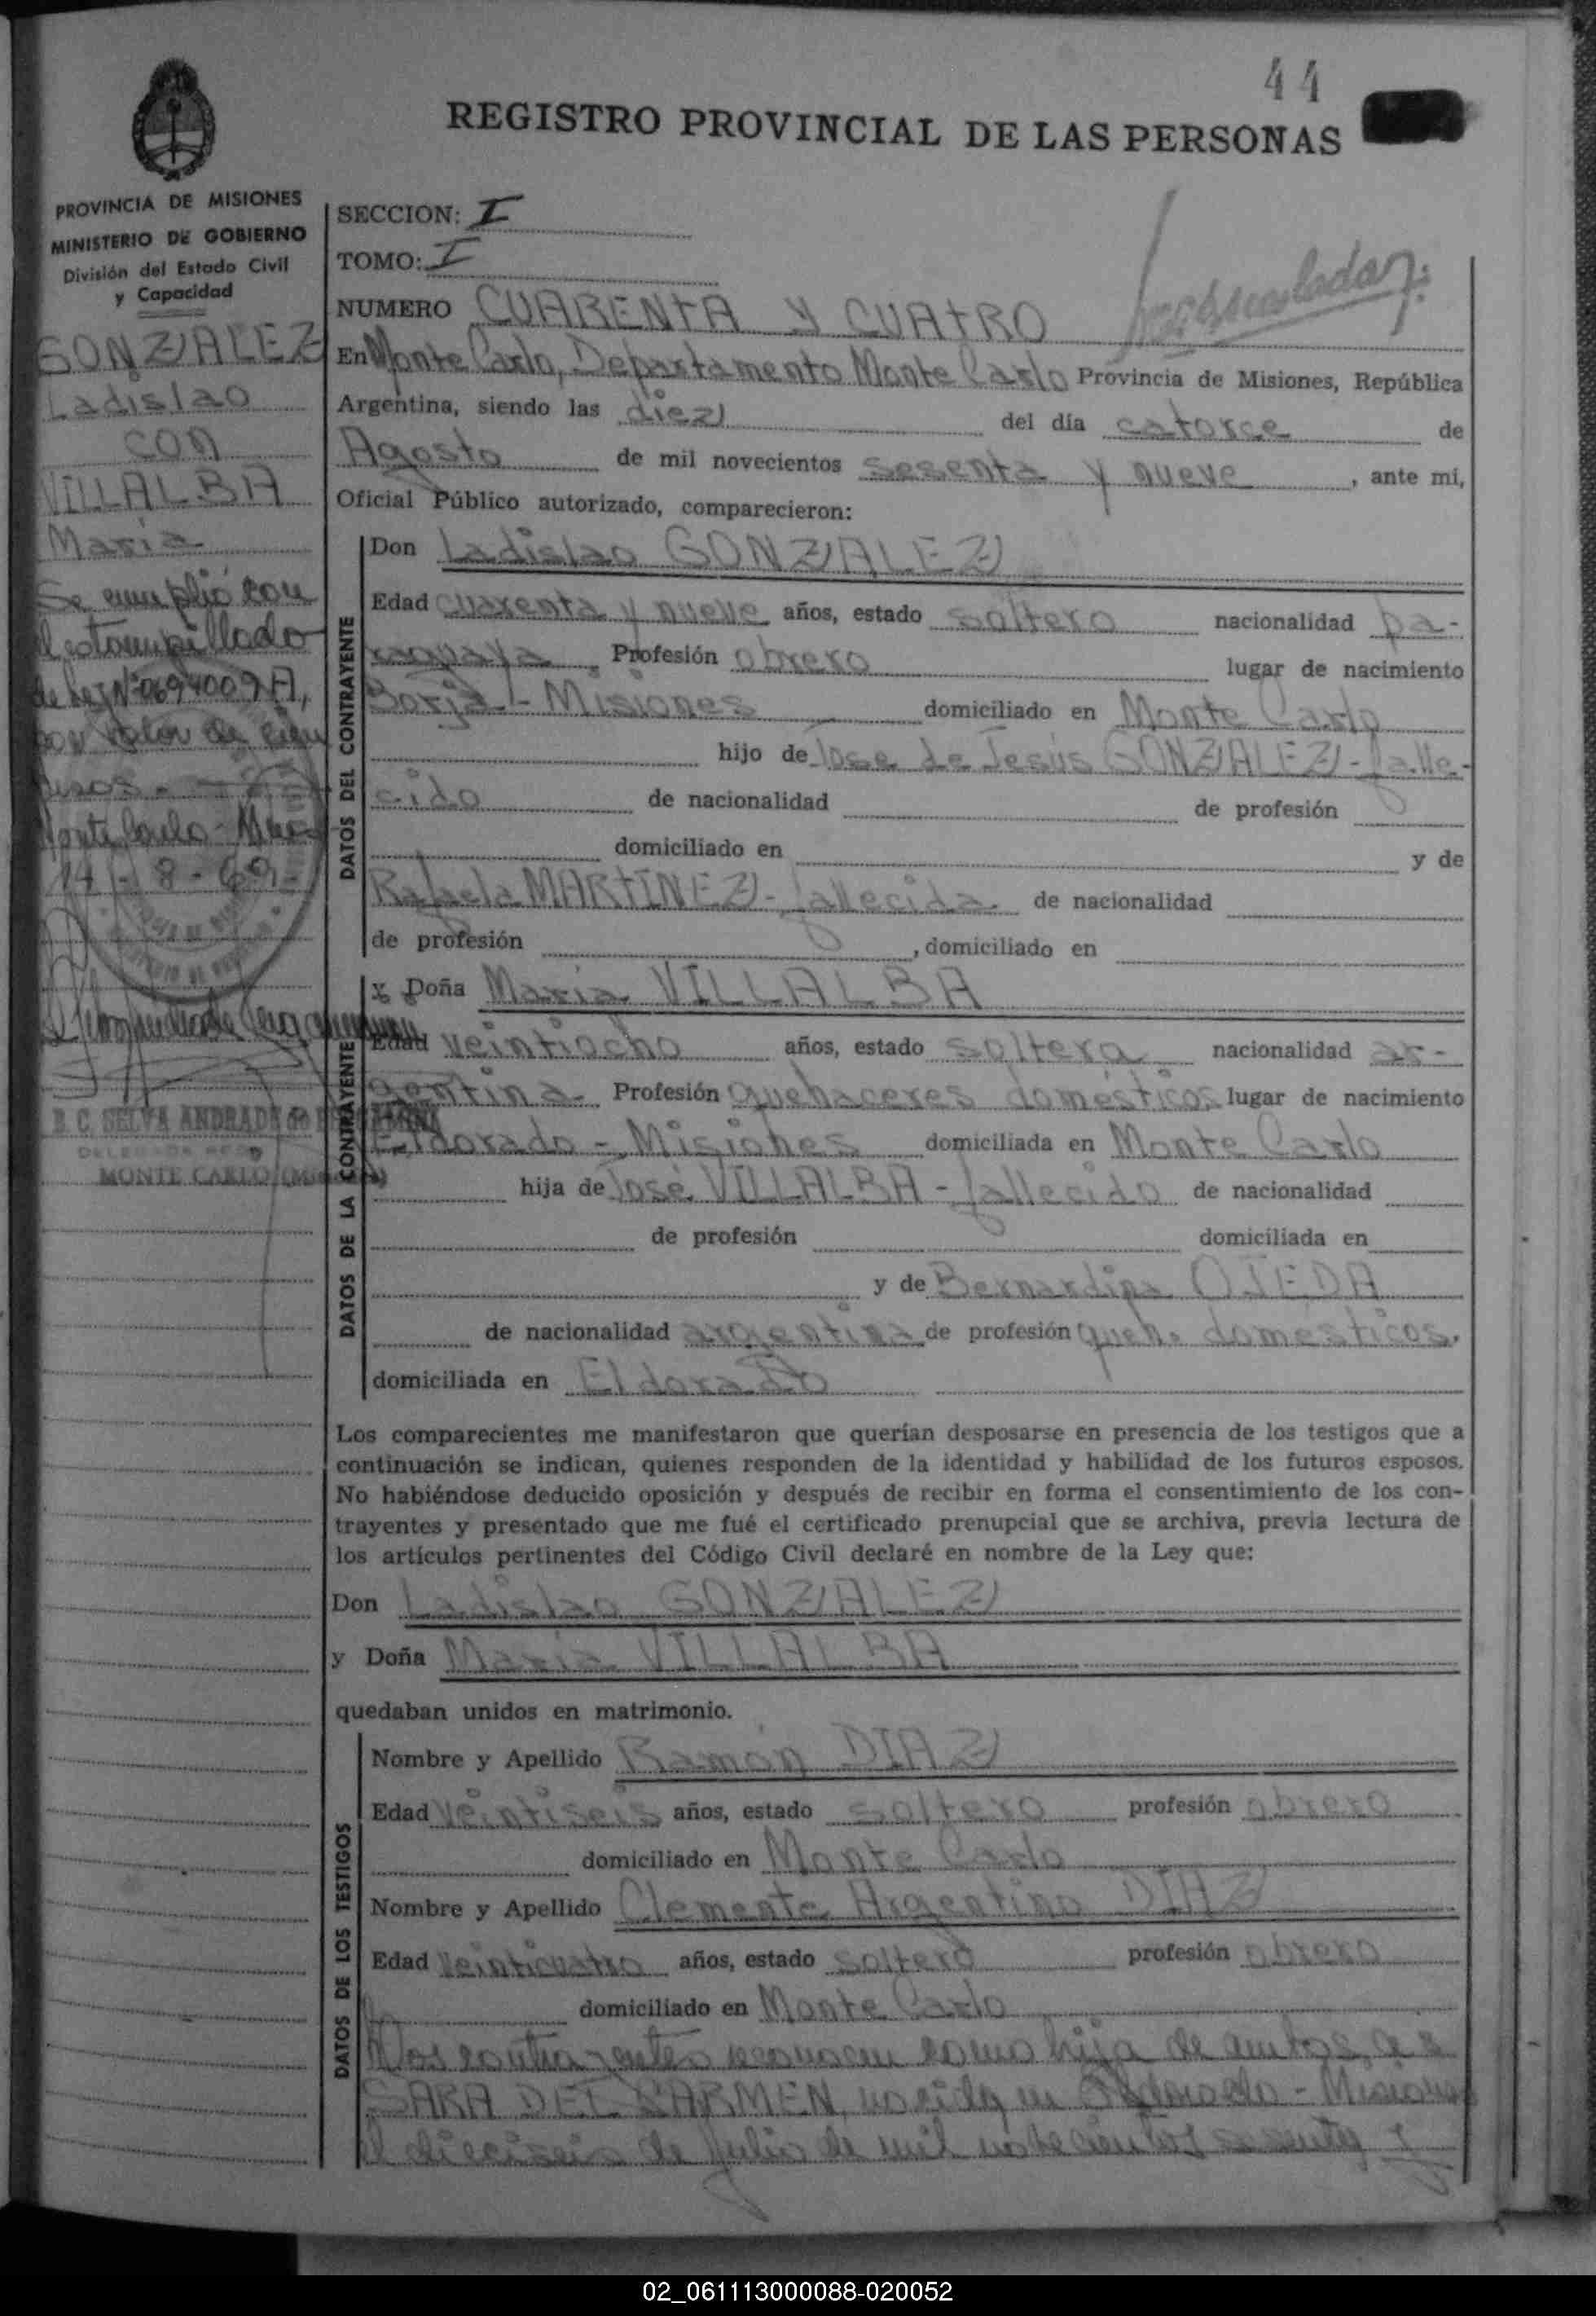 44
REGISTRO PROVINCIAL DE LAS PERSONAS
PROVINCIA DE MISIONES
MINISTERIO DE GOBIERNO
División del Estado Civil
y Capacidad
GONZALEZ
Ladislao
con
VILLALBA
Maria
Se cumplió con
el estampillado
de ley Nº 0694009 A,
por valor de cien
pesos.-
Monte Carlo - Mnes
14 - 8 - 69 -
R. C. SELVA ANDRADE de
MONTE CARLO (Misiones)
SECCION: I
TOMO: I
NUMERO CUARENTA Y CUATRO
En Monte Carlo, Departamento Monte Carlo Provincia de Misiones, República
Argentina, siendo las diez del día catorce de
Agosto de mil novecientos sesenta y nueve, ante mi,
Oficial Público autorizado, comparecieron:
DATOS DEL CONTRAYENTE
Don Ladislao GONZALEZ
Edad cuarenta y nueve años, estado soltero nacionalidad pa-
raguaya Profesión obrero lugar de nacimiento
Borja - Misiones domiciliado en Monte Carlo
hijo de Jose de Jesús GONZALEZ - falle-
cido de nacionalidad de profesión
domiciliado en y de
Rafaela MARTINEZ - fallecida de nacionalidad
de profesión , domiciliado en
DATOS DE LA CONTRAYENTE
y Doña Maria VILLALBA
Edad veintiocho años, estado soltera nacionalidad ar-
gentina Profesión quehaceres domésticos lugar de nacimiento
Eldorado - Misiones domiciliada en Monte Carlo
hija de José VILLALBA - fallecido de nacionalidad
de profesión domiciliada en
y de Bernardina OJEDA
de nacionalidad argentina de profesión queh. domésticos.
domiciliada en Eldorado
Los comparecientes me manifestaron que querían desposarse en presencia de los testigos que a
continuación se indican, quienes responden de la identidad y habilidad de los futuros esposos.
No habiéndose deducido oposición y después de recibir en forma el consentimiento de los con-
trayentes y presentado que me fué el certificado prenupcial que se archiva, previa lectura de
los artículos pertinentes del Código Civil declaré en nombre de la Ley que:
Don Ladislao GONZALEZ
y Doña Maria VILLALBA
quedaban unidos en matrimonio.
DATOS DE LOS TESTIGOS
Nombre y Apellido Ramón DIAZ
Edad veintiseis años, estado soltero profesión obrero
domiciliado en Monte Carlo
Nombre y Apellido Clemente Argentino DIAZ
Edad veinticuatro años, estado soltero profesión obrero
domiciliado en Monte Carlo
Los contrayentes reconocen como hija de ambos a:
SARA DEL CARMEN, nacida en Eldorado - Misiones
el dieciseis de Julio de mil novecientos sesenta y
02_061113000088-020052